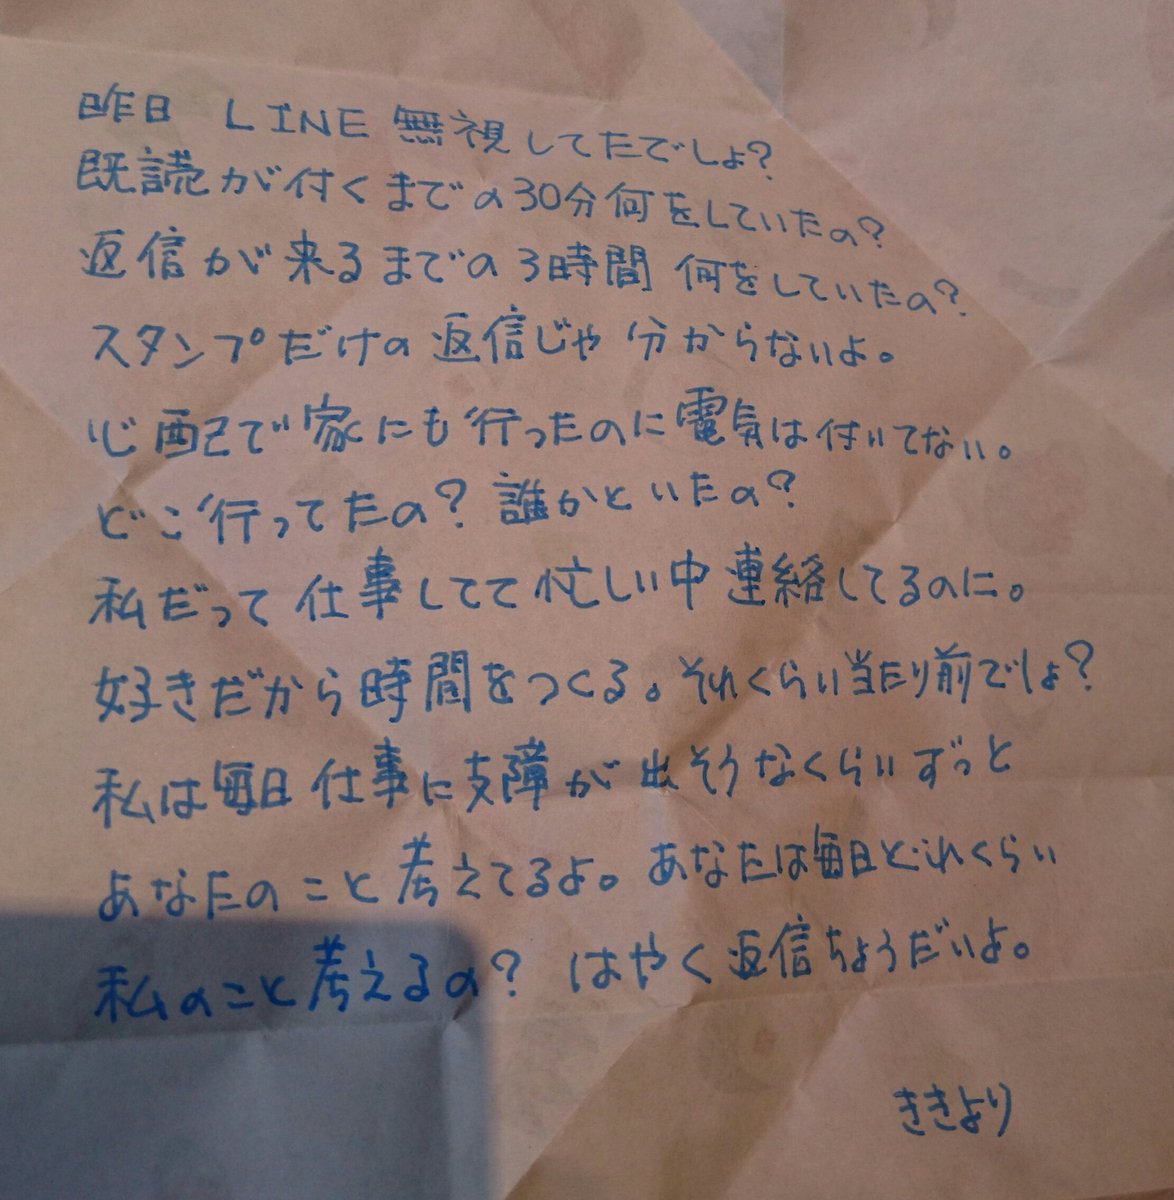 昨日 LINE 無視してたでしょ?
既読が付くまでの30分何をしていたの?
返信が来るまでの3時間 何をしていたの?
スタンプだけの返信じゃ分からないよ。
心配で家にも行ったのに電気は付いてない。
どこ行ってたの?誰かといたの?
私だって仕事してて忙しい中連絡してるのに。
好きだから時間をつくる。それくらい当たり前でしょ?
私は毎日仕事に支障が出そうなくらいずっと
あなたのこと考えてるよ。あなたは毎日どれくらい
私のこと考えるの? はやく返信ちょうだいよ。
ききより